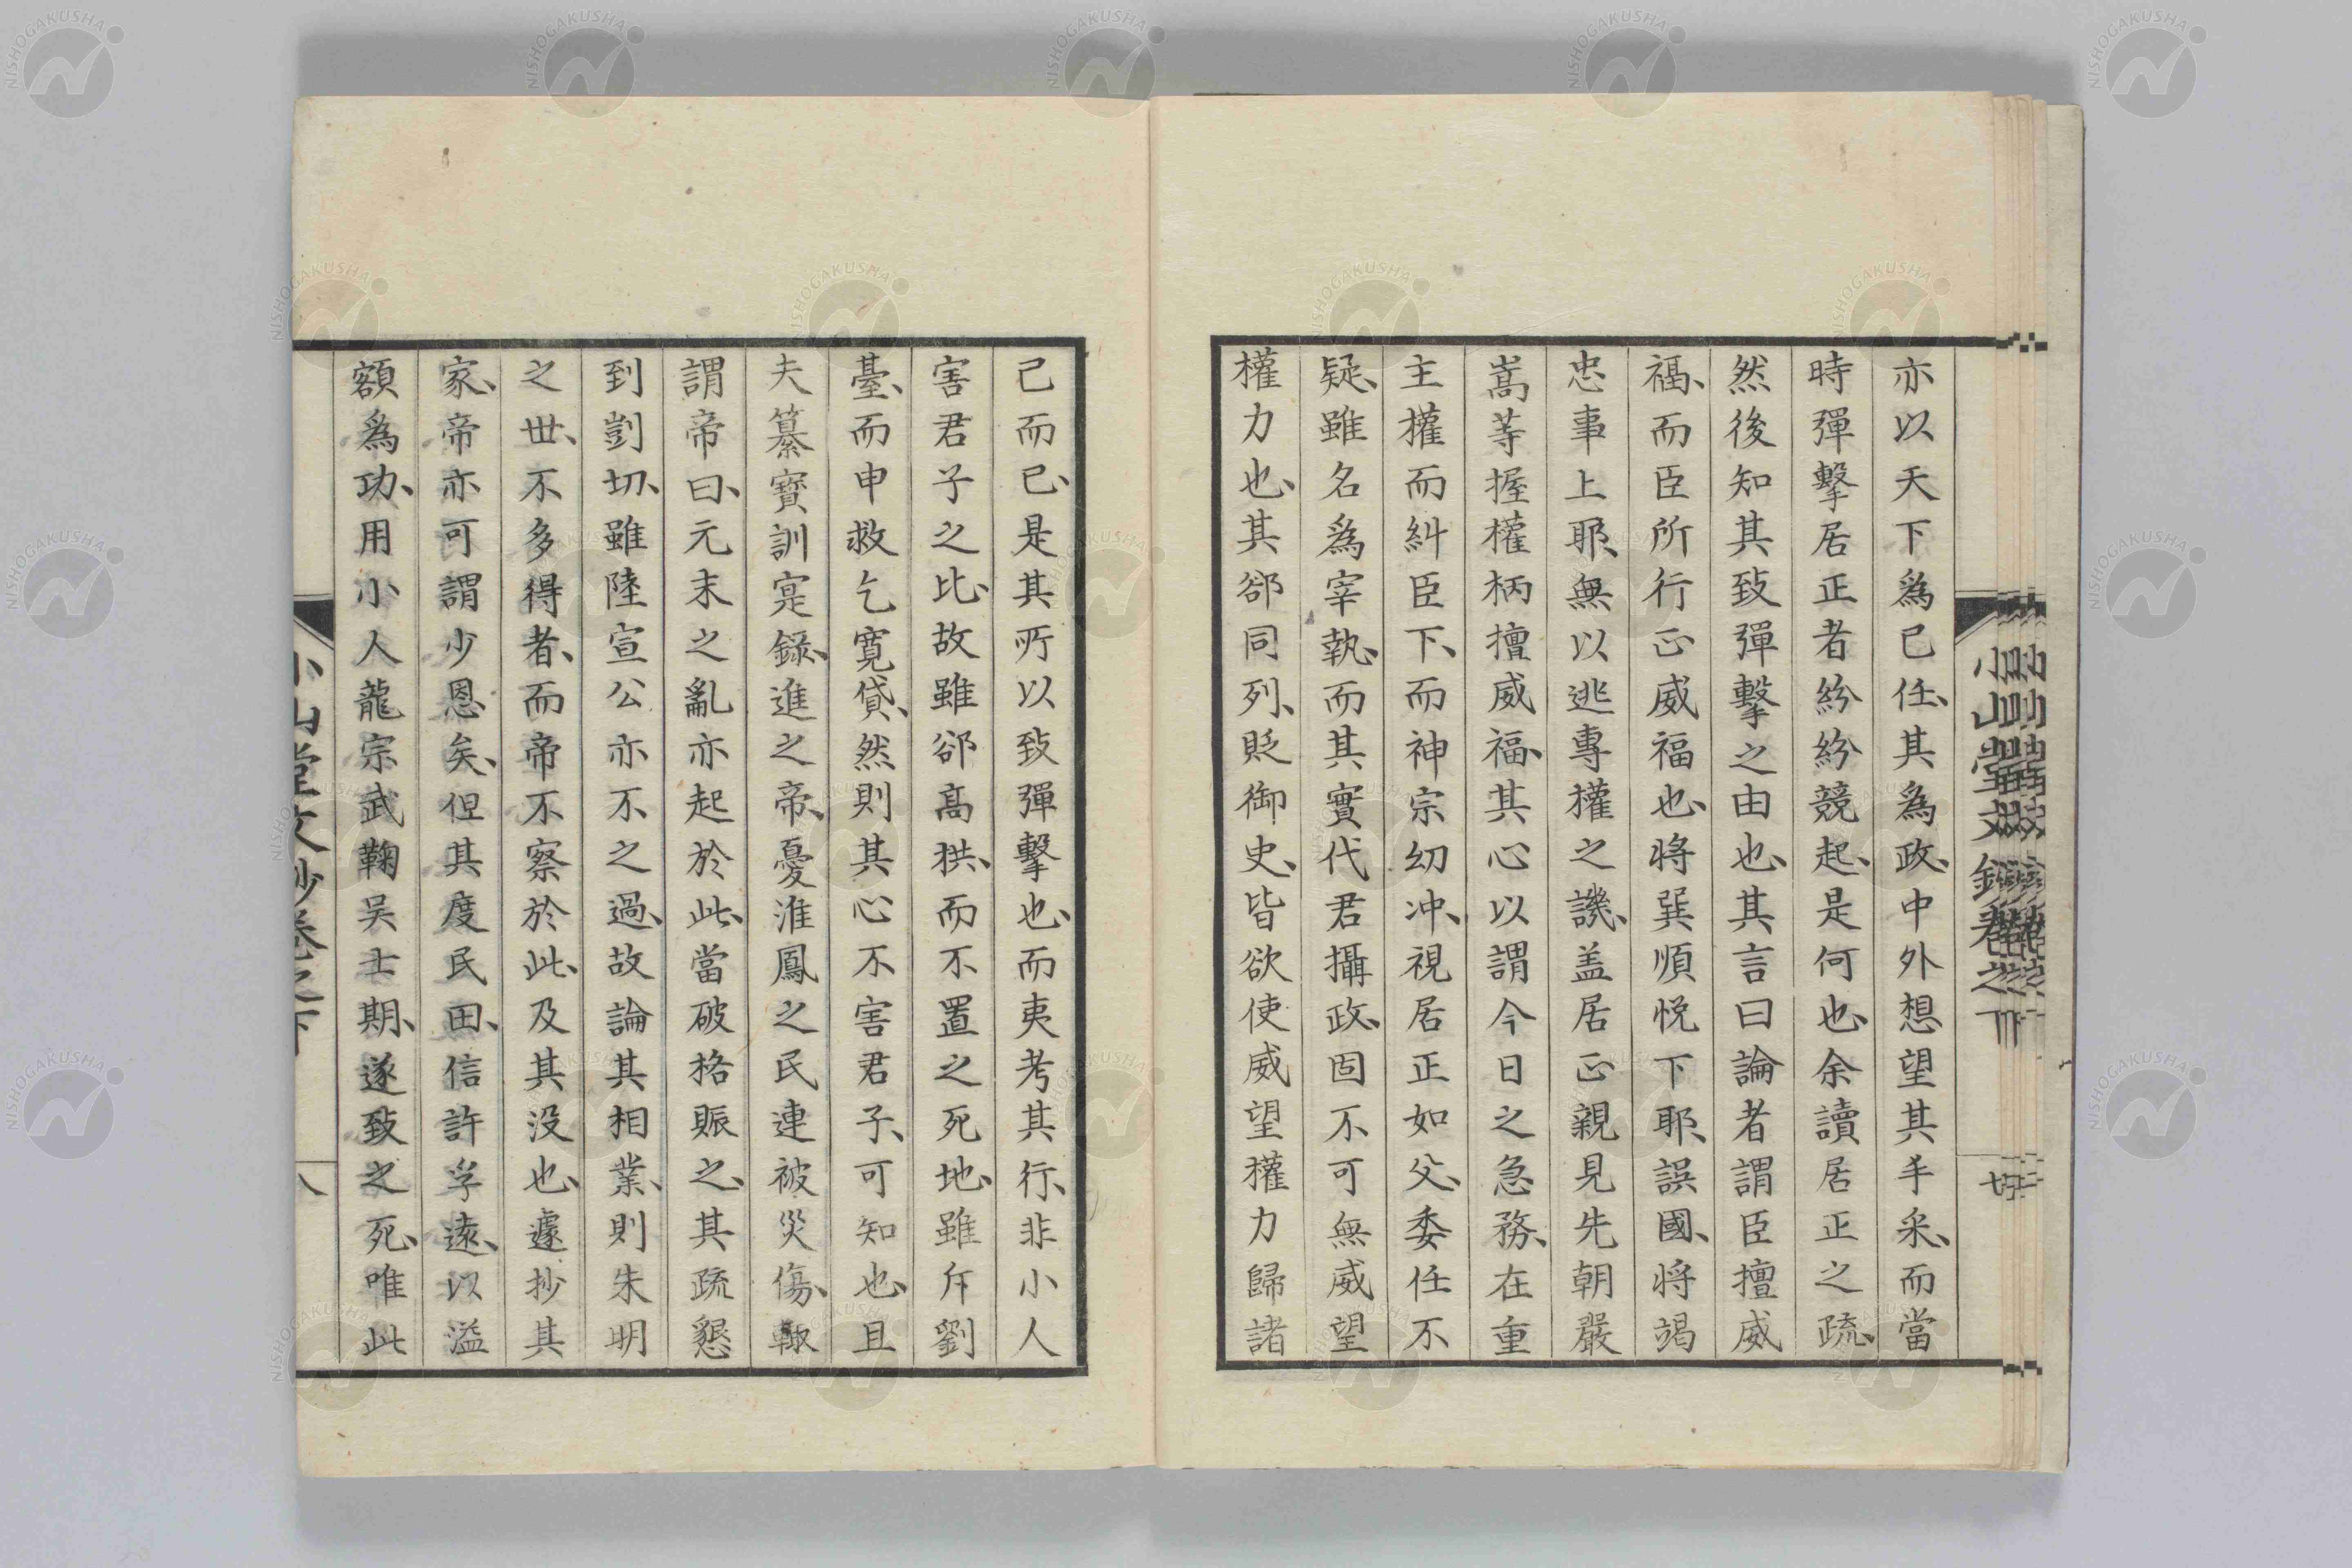 亦以天下爲已任、其爲政、中外想望其手采、而當
時彈擊居正者紛紛競起、是何也、余讀居正之疏、
然後知其致彈擊之由也、其言曰論者謂臣擅威
福、而臣所行正威福也、將巽順悅下耶、誤國、將竭
忠事上耶、無以逃專權之譏、盖居正親見先朝嚴
嵩等握權柄擅威福、其心以謂今日之急務、在重
主權而糾臣下、而神宗幼冲、視居正如父、委任不
疑、雖名爲宰執、而其實代君攝政、固不可無威望
權力也、其郤同列、貶御史、皆欲使威望權力歸諸
小山堂文鈔卷之下
己而已、是其所以致彈擊也、而夷考其行、非小人
害君子之比、故雖郤高拱、而不置之死地、雖斥劉
臺、而申救乞寬貸、然則其心不害君子、可知也、且
夫纂寶訓寔錄、進之帝、憂淮鳳之民連被災傷、輙
謂帝曰、元末之亂亦起於此、當破格賑之、其疏懇
到剴切、雖陸宣公亦不之過、故論其相業、則朱明
之世、不多得者、而帝不察於此、及其没也、遽抄其
家、帝亦可謂少恩矣、但其度民田、信許孚遠、以溢
額爲功、用小人龍宗武鞠吴士期、遂致之死、唯此
小山堂文鈔卷之下
八